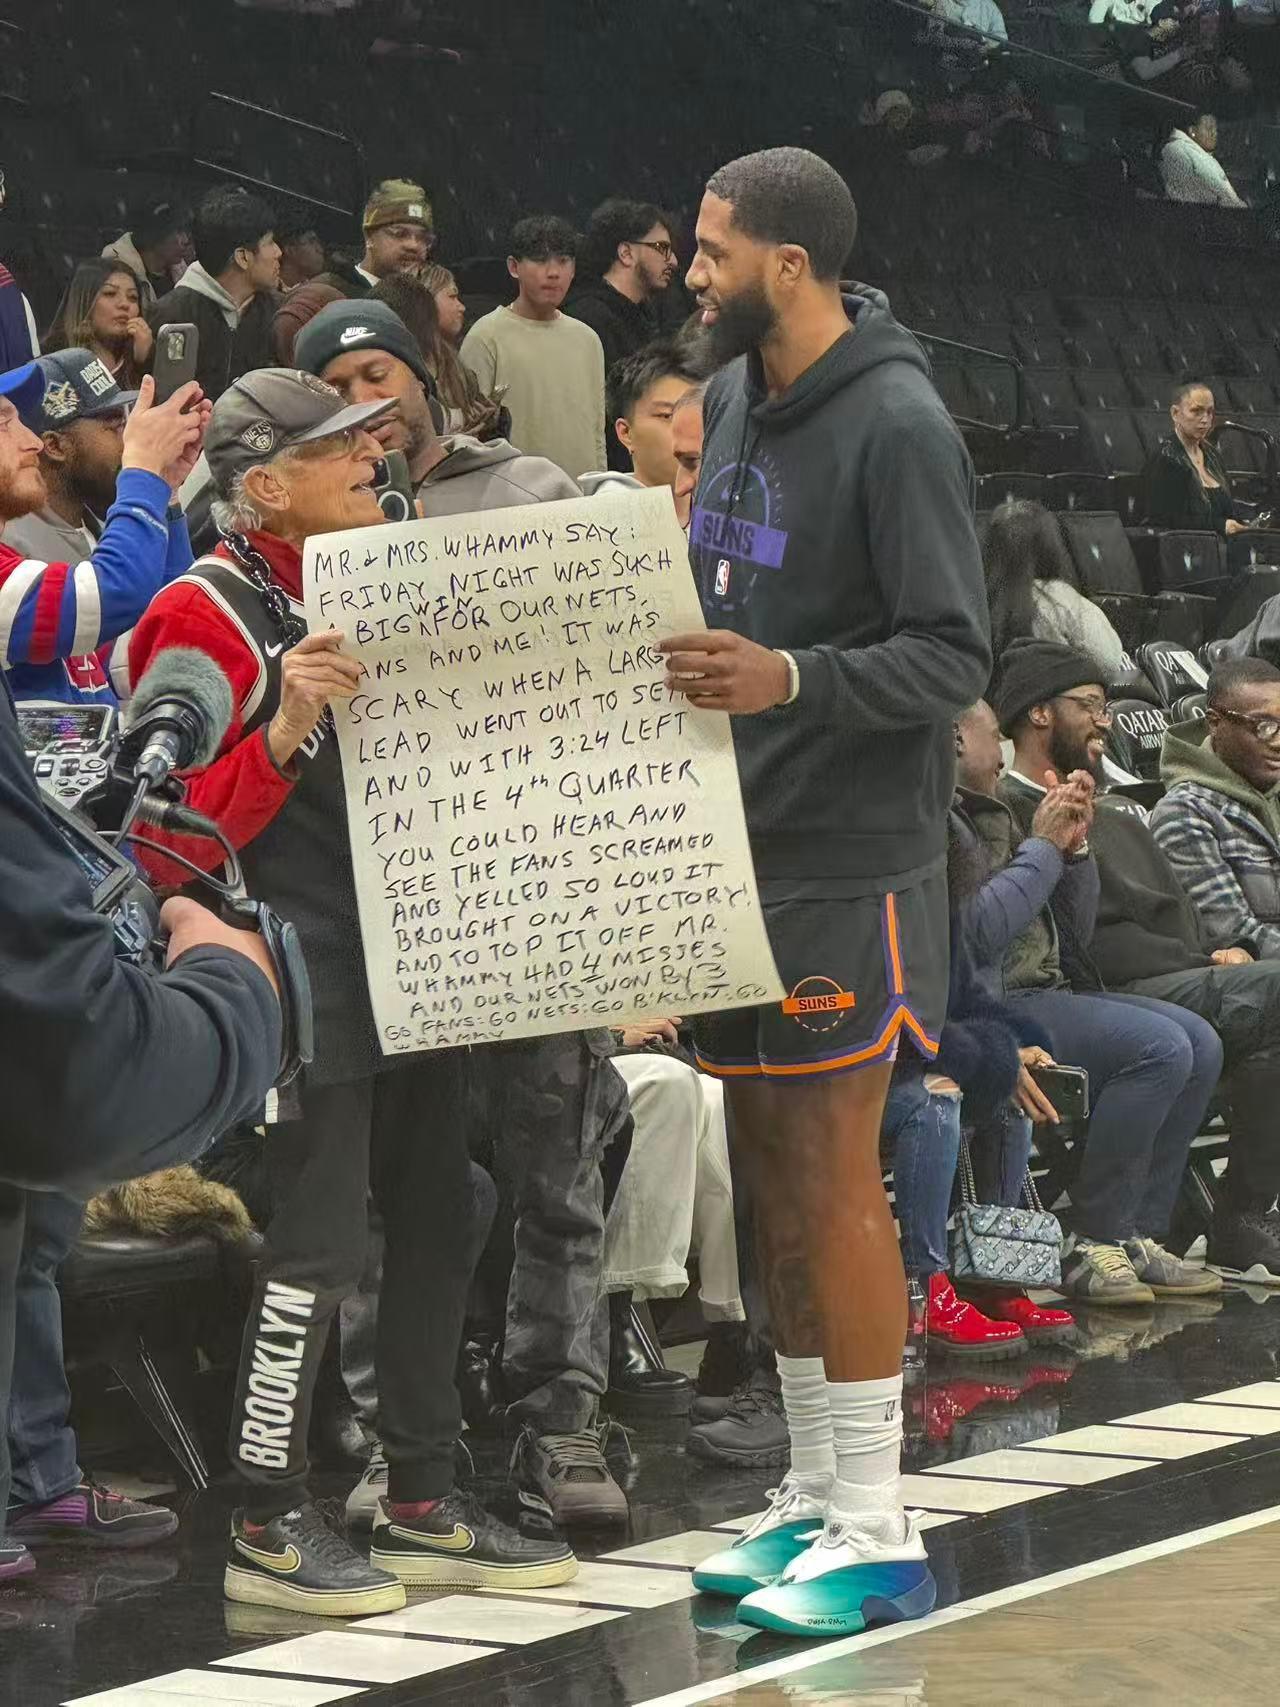 NIKE
NETS
SUNS
MR. & MRS. WHAMMY SAY:
FRIDAY NIGHT WAS SUCH
A BIG WIN FOR OUR NETS.
FANS AND ME! IT WAS
SCARY WHEN A LARG
LEAD WENT OUT TO SEA
AND WITH 3:24 LEFT
IN THE 4th QUARTER
YOU COULD HEAR AND
SEE THE FANS SCREAMED
AND YELLED SO LOUD IT
BROUGHT ON A VICTORY!
AND TO TOP IT OFF MR.
WHAMMY HAD 4 MISSES
AND OUR NETS WON BY 3
GO FANS: GO NETS: GO B'KLYN: GO
WHAMMY
QATAR
AIRW
SUNS
BROOKLYN